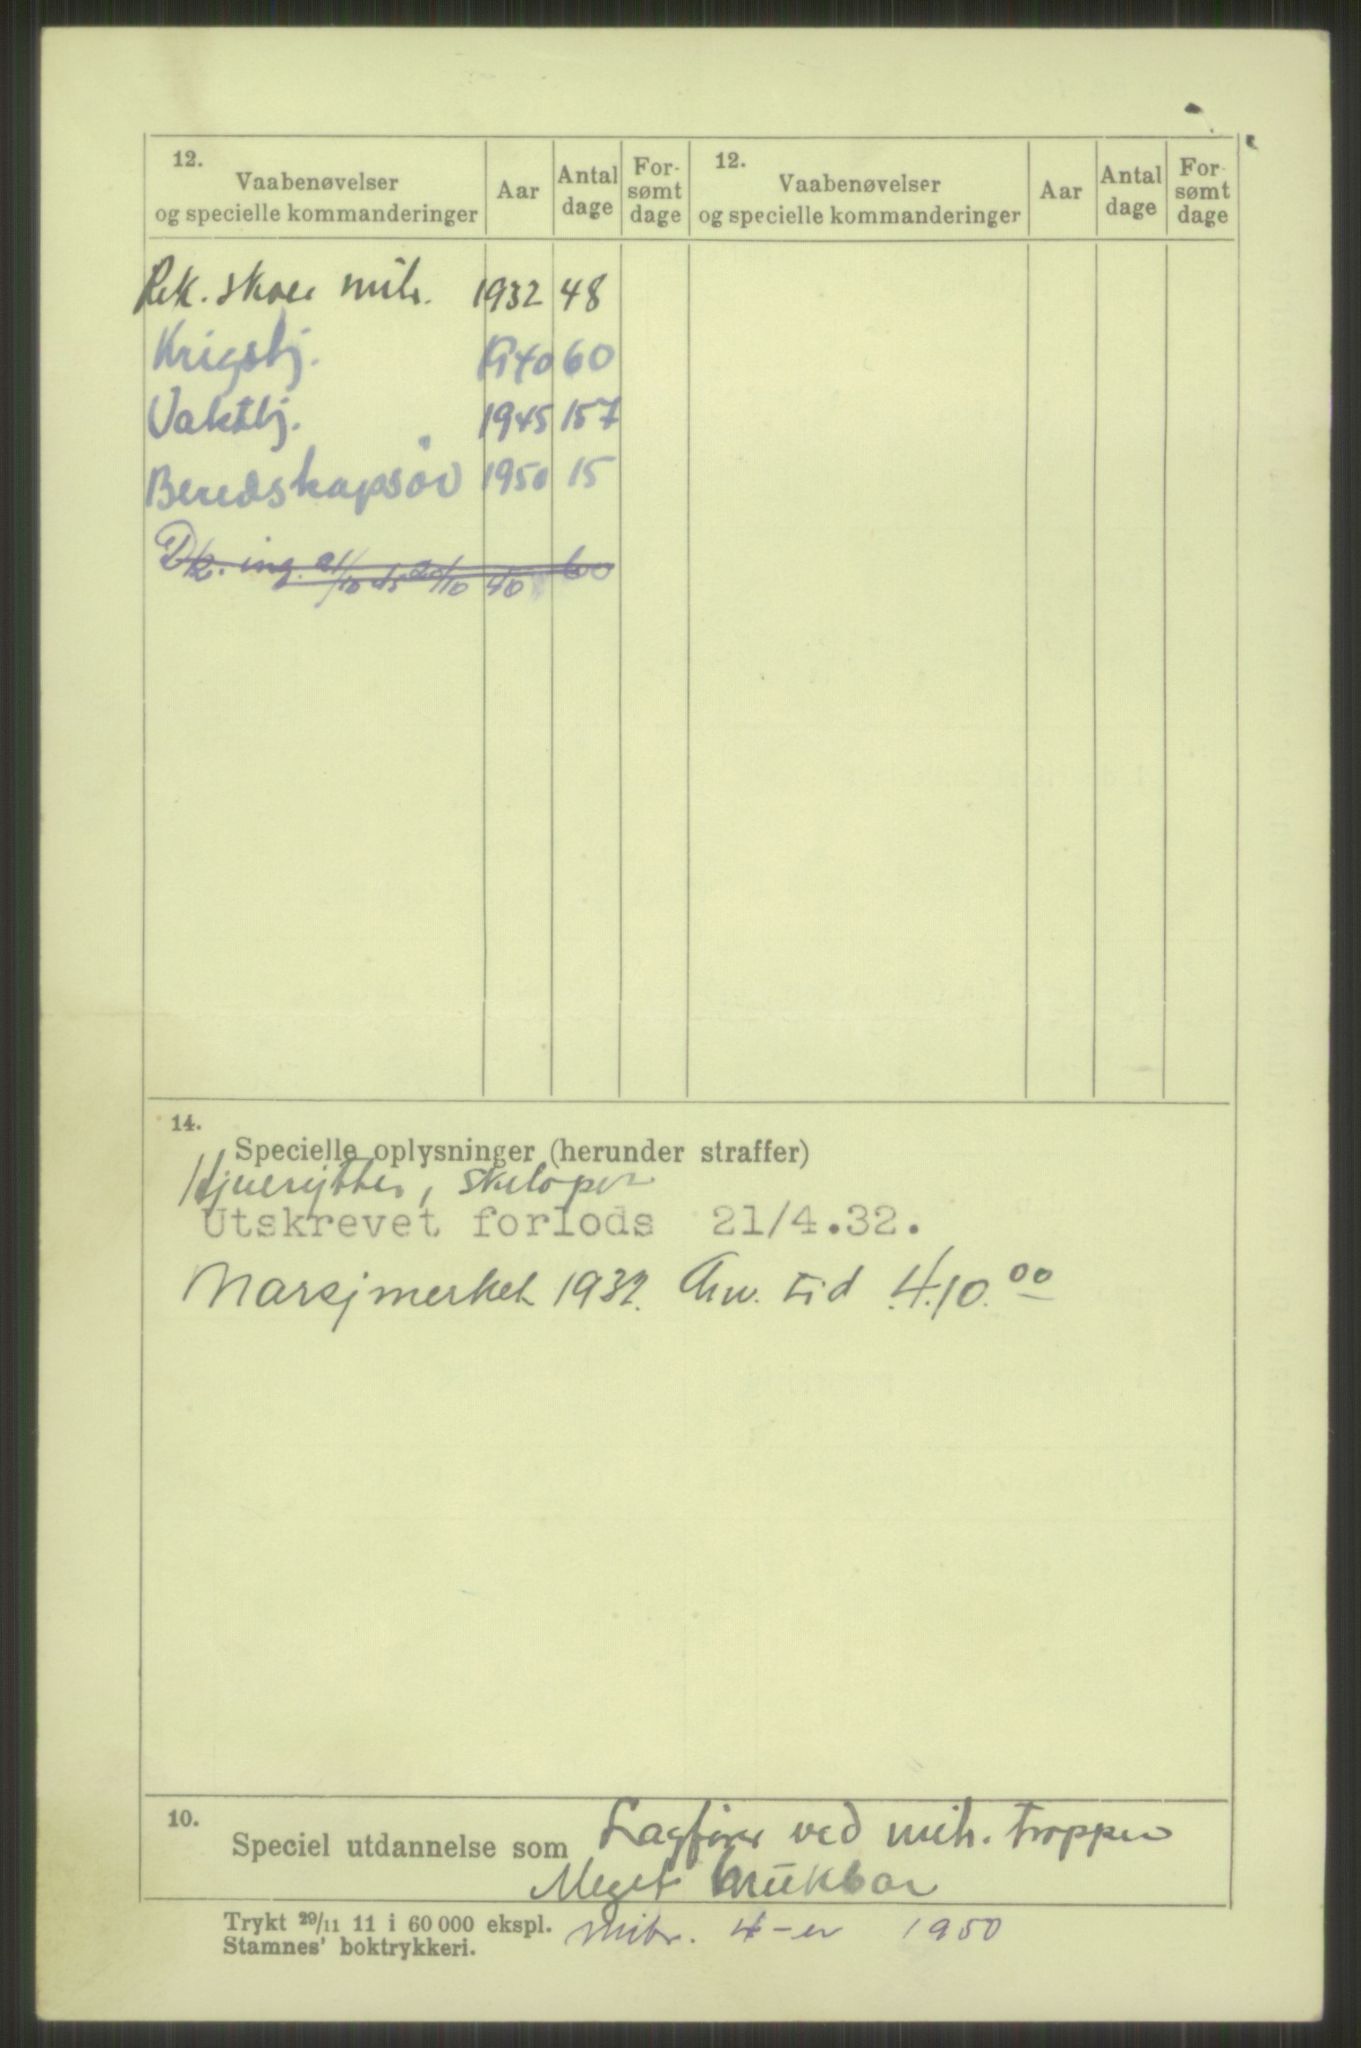 12.
Vaabenøvelser
og specielle kommanderinger
Aar
Antal
dage
For-
sømt
dage
12.
Vaabenøvelser
og specielle kommanderinger
Aar
Antal
dage
For-
sømt
dage
Rek. skole mitr. 1932 48
Krigstj. 1940 60
Vakttj. 1945 157
Beredskapsøv 1950 15
40 60
14.
Specielle oplysninger (herunder straffer)
skiløper
Utskrevet forlods 21/4.32.
Marsjmerket 1932. Anv. tid 4.10.00
10.
Speciel utdannelse som Lagfører ved mitr. troppen
Meget brukbar
Trykt 29/11 11 i 60 000 ekspl.
Stamnes' boktrykkeri.
Mitr. 4-er 1950